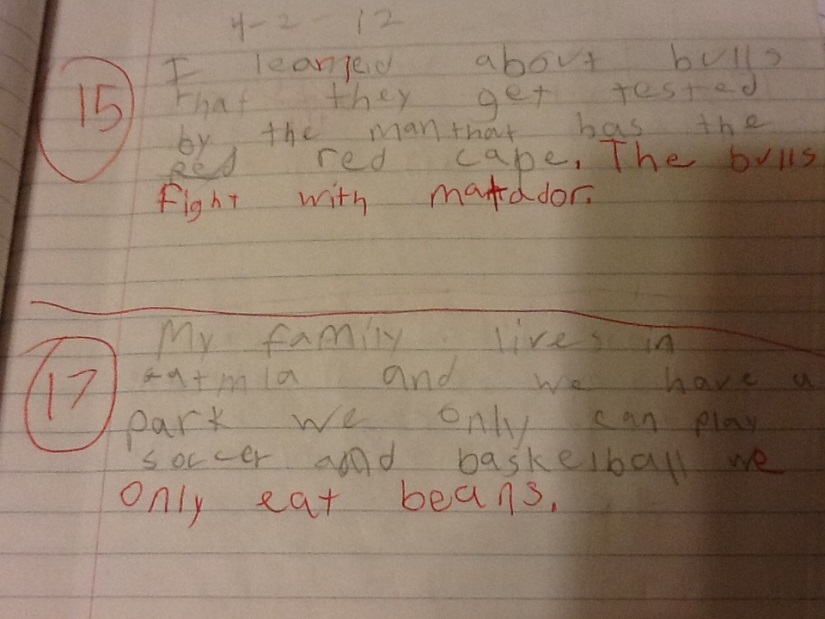 4-2-12
15
I learned about bulls
that they get tested
by the man that has the
Red red cape. The bulls
fight with matador.
17
My family lives in
and we have a
park we only can play
soccer and basketball we
only eat beans.